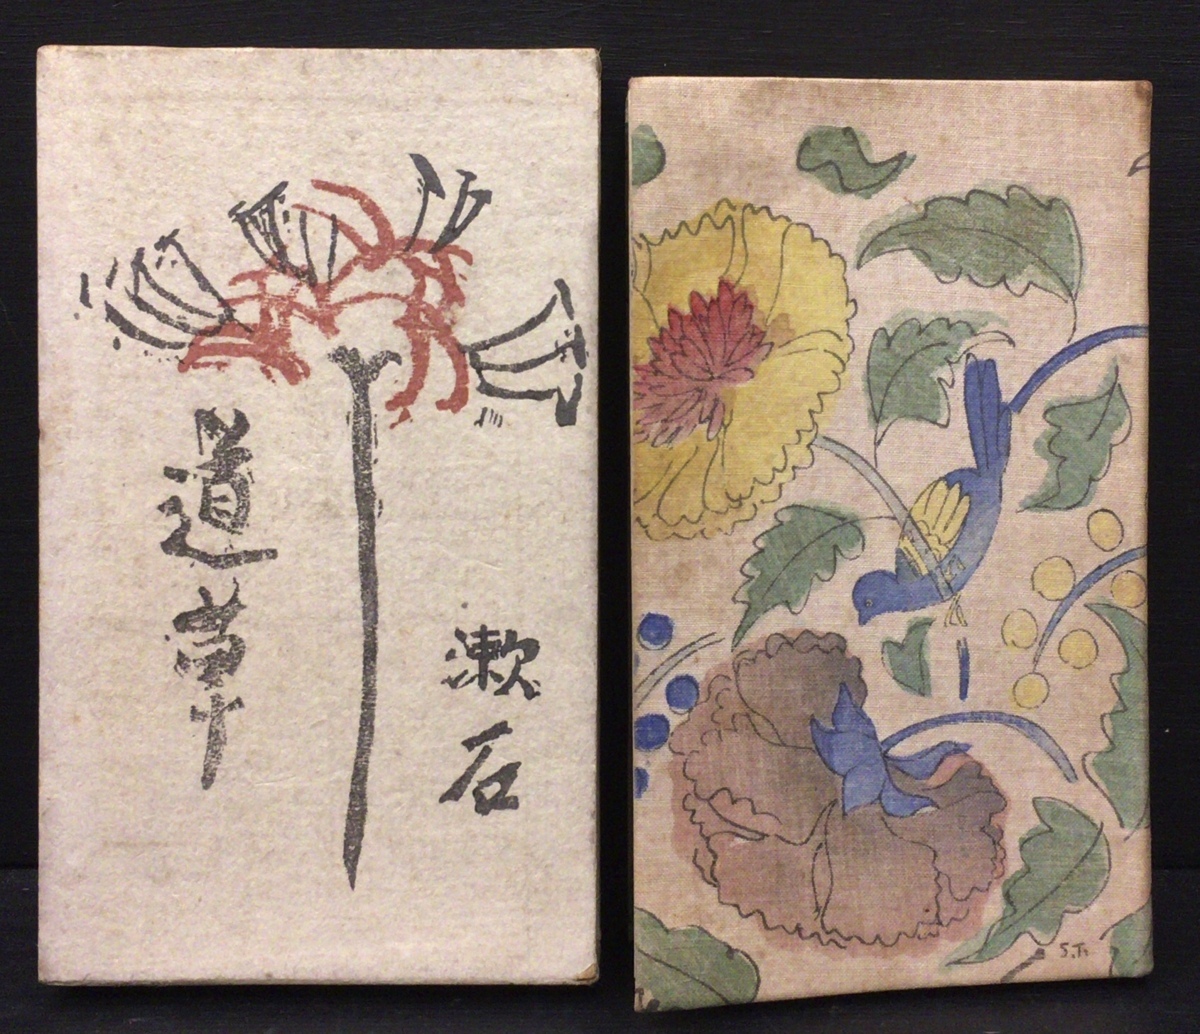 道草
漱石
S.T.